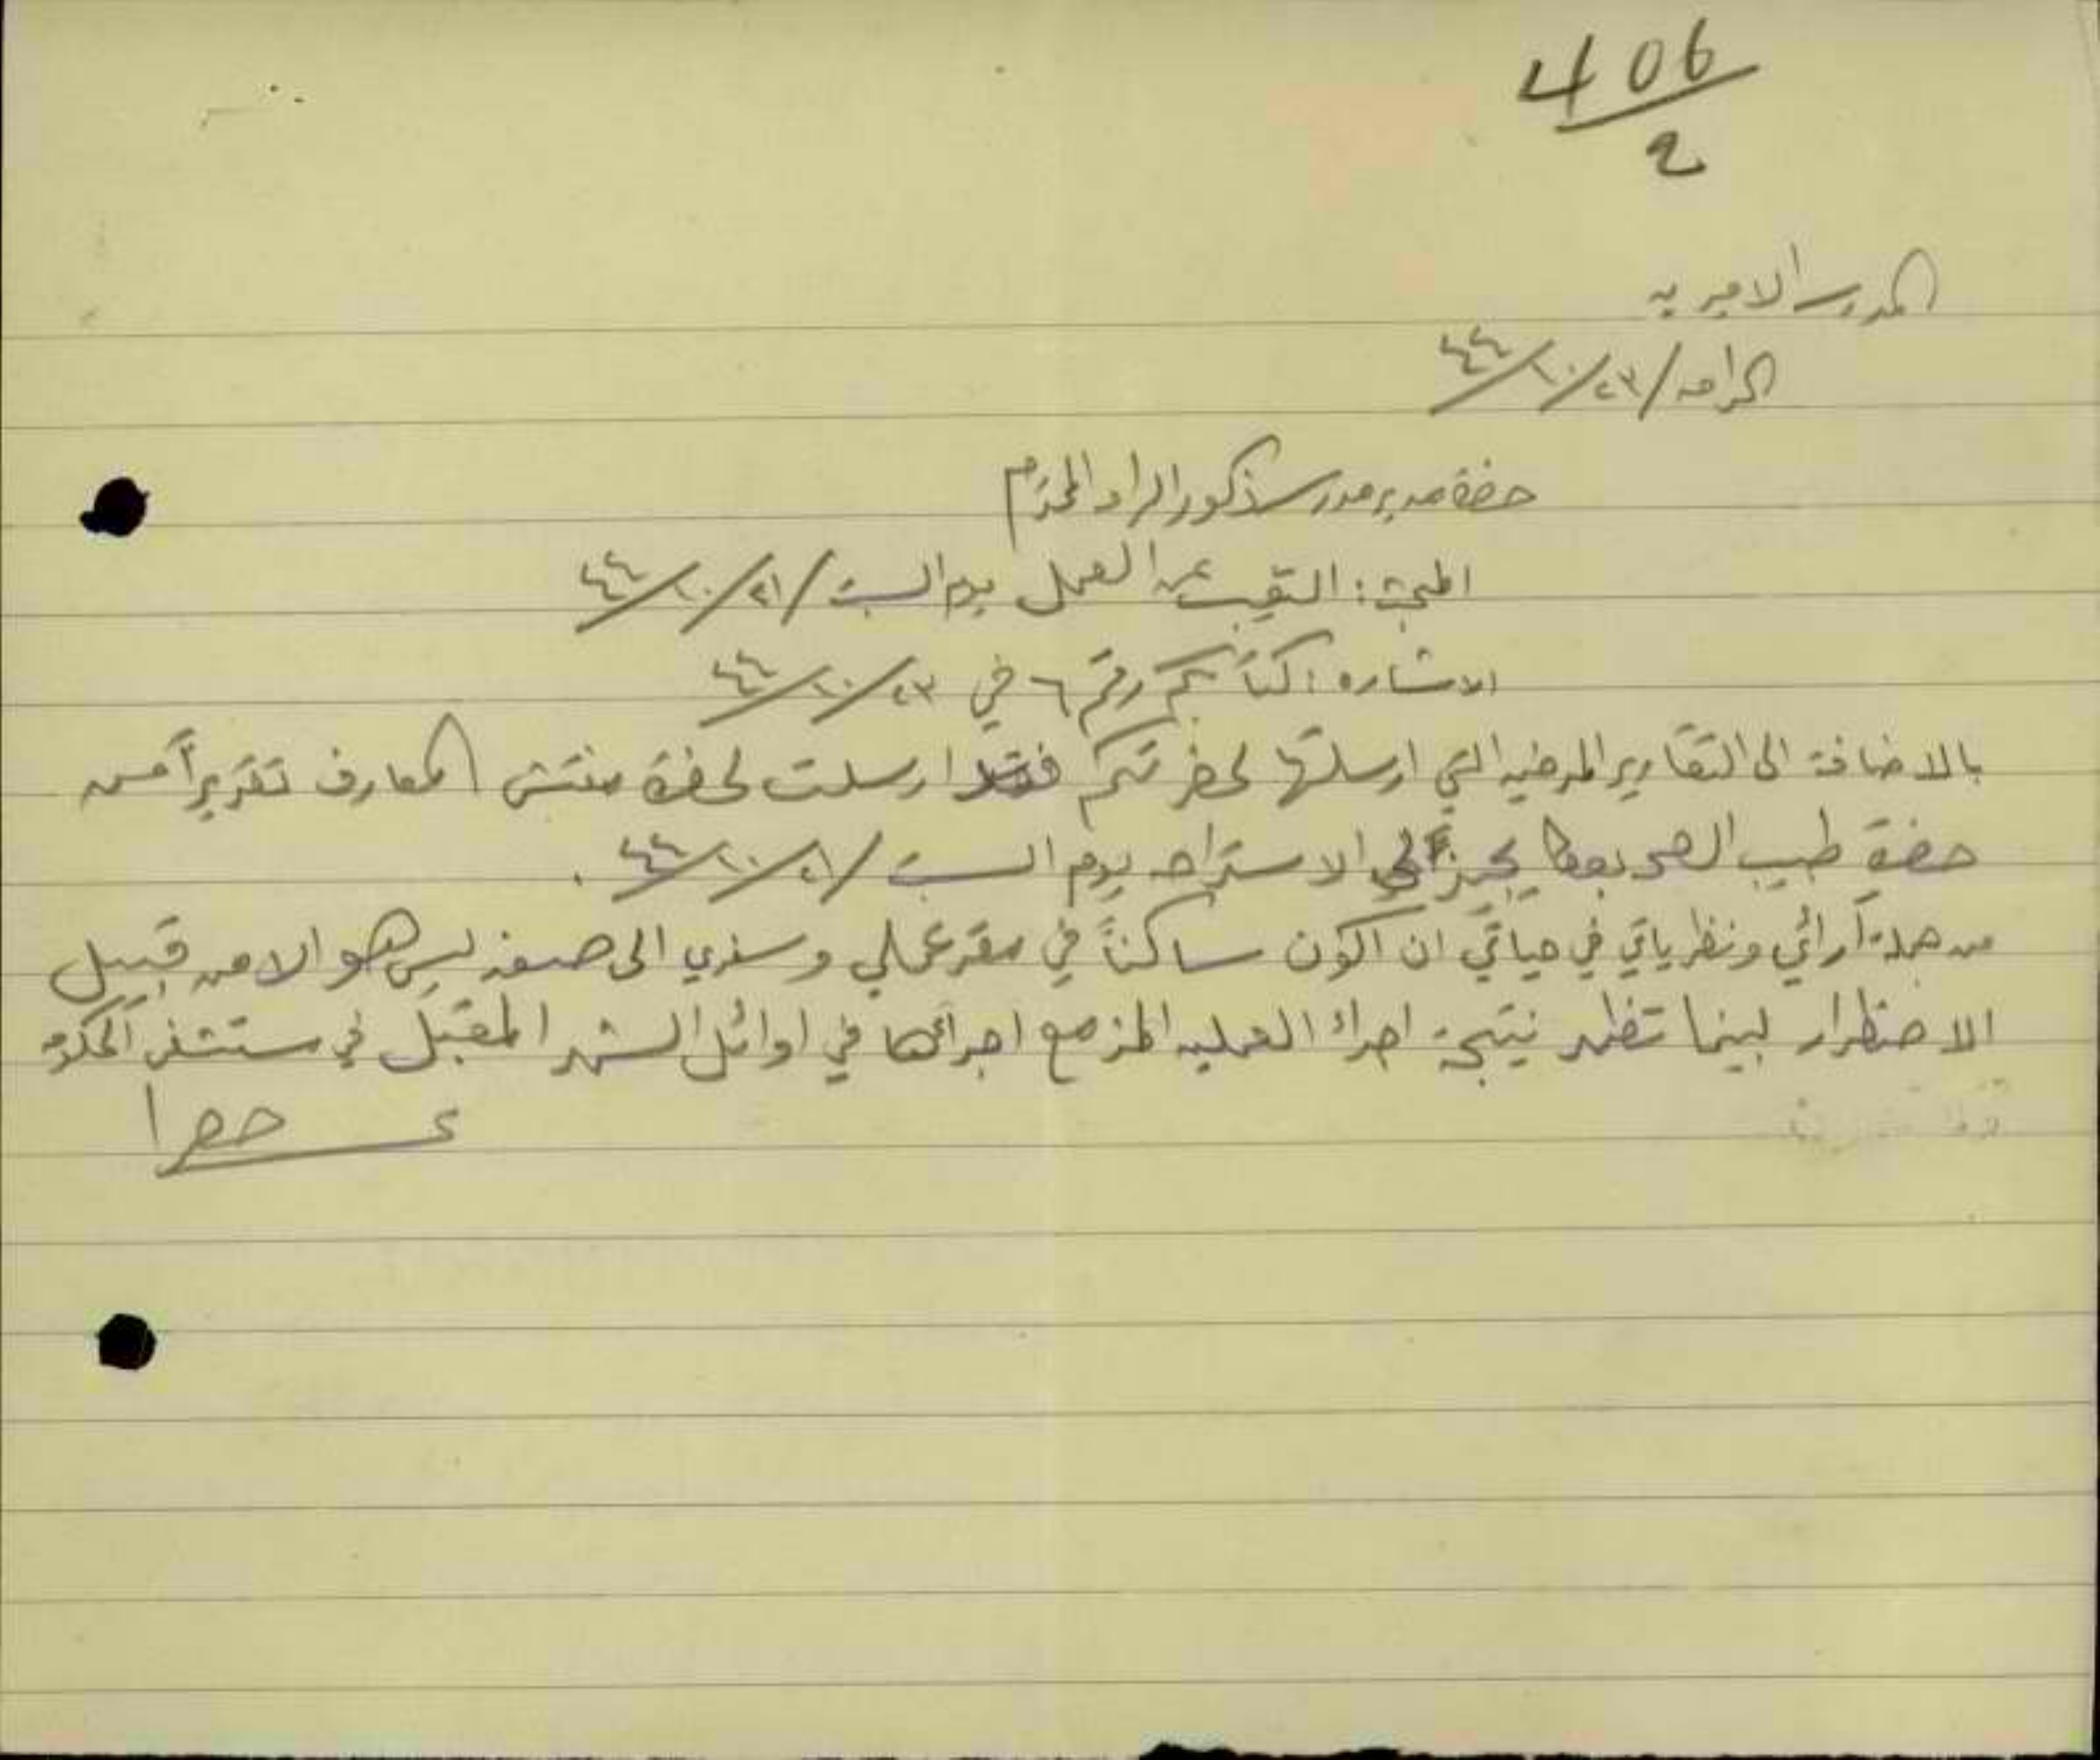 406
2
المدرسة الاميرية
الرامه / ٢٣ / ١٠ / ٤٤
حضرة مدير مدرسة ذكور الرامه المحترم
المبحث : التغيب عن العمل يوم السبت / ٢١ / ١٠ / ٤٤
الاشاره : كتابكم رقم ٦ في ٢٣ / ١٠ / ٤٤
بالاضافة الى التقارير المرضيه التي ارسلتها لحضرتكم فقد ارسلت لحضرة مفتش المعارف تقريراً من
حضرة طبيب الصحه بعكا يجيز لي الاستراحه يوم السبت / ٢١ / ١٠ / ٤٤ .
من جملة آرائي ونظرياتي في حياتي ان اكون ساكناً في مقر عملي وسفري الى ليس هو الا من قبيل
الاضطرار لبينما تظهر نتيجة اجراء العمليه المزمع اجرائها في اوائل الشهر المقبل في مستشفى الحكومة